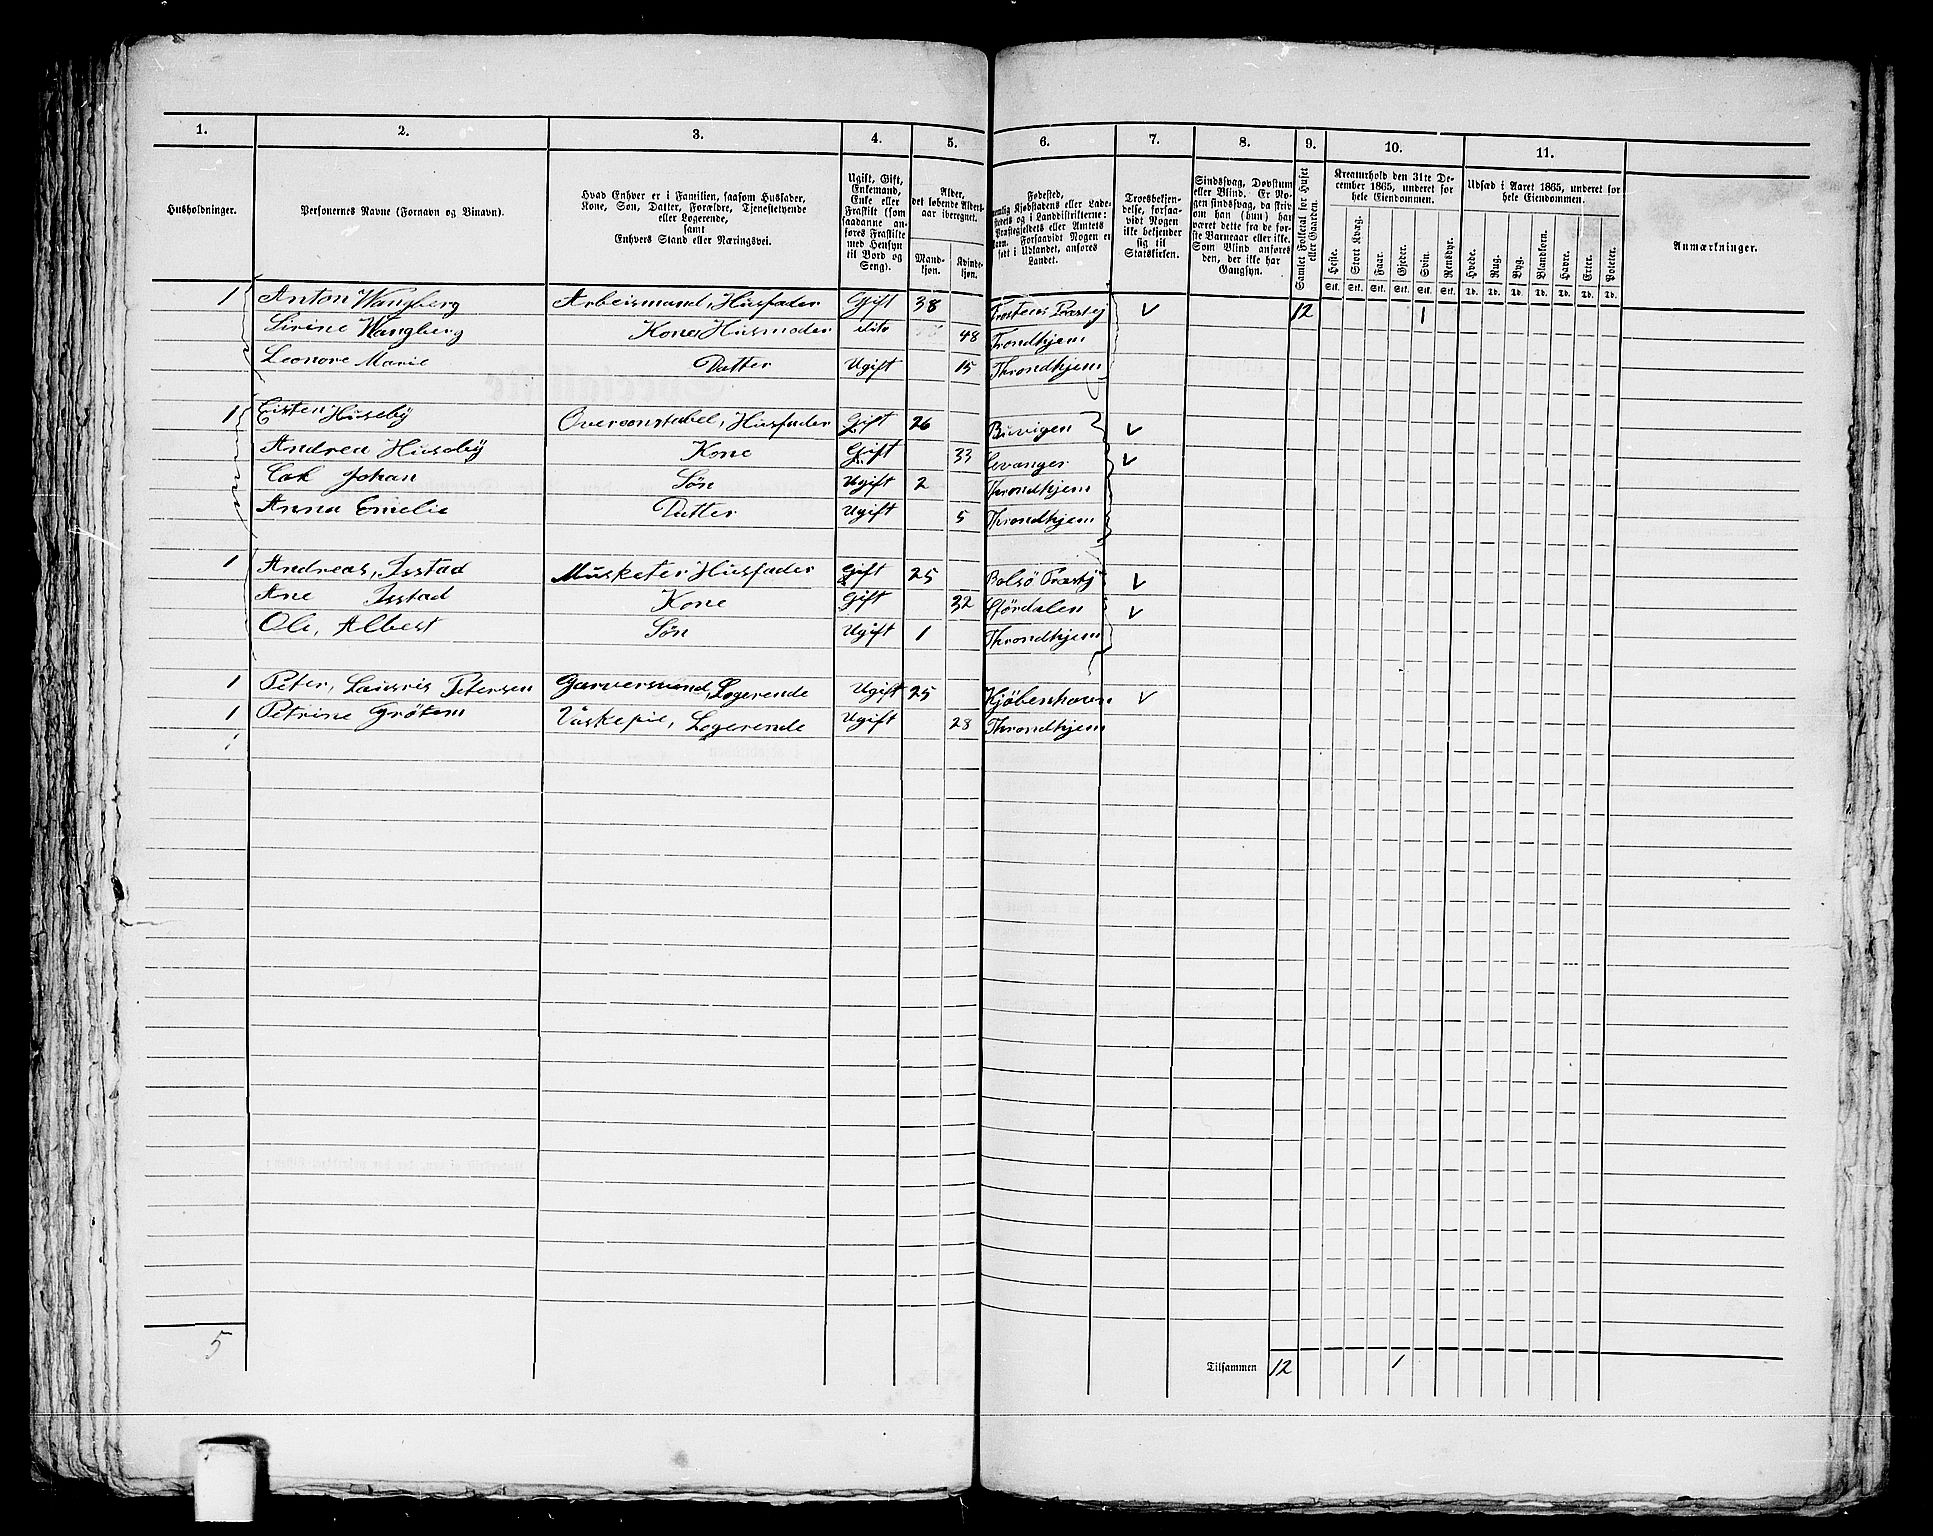 1. 2. 3. 4. 5. 6. 7. 8. 9. 10. 11.
Husholdninger.
Personernes Navne (Fornavn og Binavn).
Hvad Enhver er i Familien, saasom Husfader,
Kone, Søn, Datter, Forældre, Tjenestetyende
eller Logerende,
samt
Enhvers Stand eller Næringsvei.
Ugift, Gift,
Enkemand,
Enke eller
Fraskilt (som
saadanne an-
føres Fraskilte
med Hensyn
til Bord og
Seng).
Alder,
det løbende Alders-
aar iberegnet.
Mand-
kjøn.
Kvinde-
kjøn.
Fødested,
Troesbekjen-
delse, forsaa-
vidt Nogen
ikke bekjender
sig til
Statskirken.
Sindssvag, Døvstum
eller Blind. Er No-
gen sindssvag, da skriv
om han (hun) har
været dette fra de før-
ste Barneaar eller ikke.
Som Blind anføres
den, der ikke har
Gangsyn.
Samlet Folketal for Huset
eller Gaarden.
Kreaturhold den 31te De-
cember 1865, underet for
hele Eiendommen.
Heste. Stort Kvæg. Faar. Gjeder. Svin. Rensdyr.
Stk. Stk. Stk. Stk. Stk. Stk.
Udsæd i Aaret 1865, underet for
hele Eiendommen.
Hvede. Rug. Byg. Blandkorn. Havre. Erter. Poteter.
Td. Td. Td. Td. Td. Td. Td.
Anmærkninger.
1 Anton Wangberg Arbeismand, Husfader Gift 38 Frostens Præstej 12 1
Sirine Wangberg Kone Husmoder dito 48 Trondhjem
Leonore Marie Datter Ugift 15 Throndhjem
1 Eisten Huseby Overconstabel, Husfader Gift 26 Buvigen
Andrea Huseby Kone Gift 33 Levanger
Johan Søn Ugift 2 Throndhjem
Anna Emelie Datter Ugift 5 Throndhjem
1 Andreas, Isstad Musketer Husfader Gift 25 Bolsö Præstj
Ane Isstad Kone Gift 32 Stördalen
Ole, Albert Søn Ugift 1 Throndhjem
1 Peter, Lauris Petersen Garversvend, Logerende Ugift 25 Kjöbenhavn
1 Petrine Grötem Vaskepie, Logerende Ugift 28 Throndhjem
5
Tilsammen 12 1